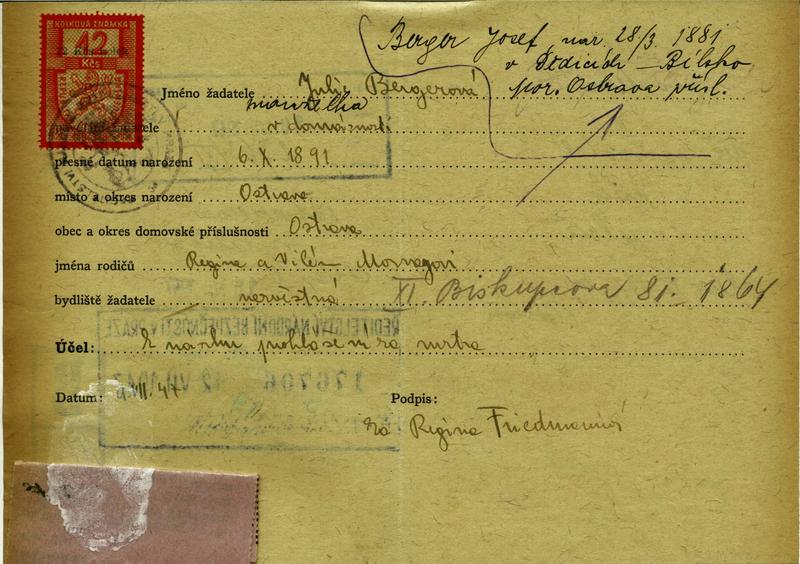 KOLKOVÁ ZNÁMKA
12
Kčs
Berger Josef, nar. 28/3. 1881
v Dědicích - Bílsko
por. Ostrava přísl.
Jméno žadatele Julie Bergerová
manželka
v domácnosti
přesné datum narození 6. X. 1891
místo a okres narození Ostrava
obec a okres domovské příslušnosti Ostrava
jména rodičů Regina a Vilém
bydliště žadatele XI. Biskupcova 81. 1864
ŘEDITELSTVÍ NÁRODNÍ BEZPEČNOSTI V PRAZE
Účel: K návrhu prohlášení za mrtva
176706 12 VII 1947
Datum: 9. VII. 47 Podpis:
za Regina Friedmannová